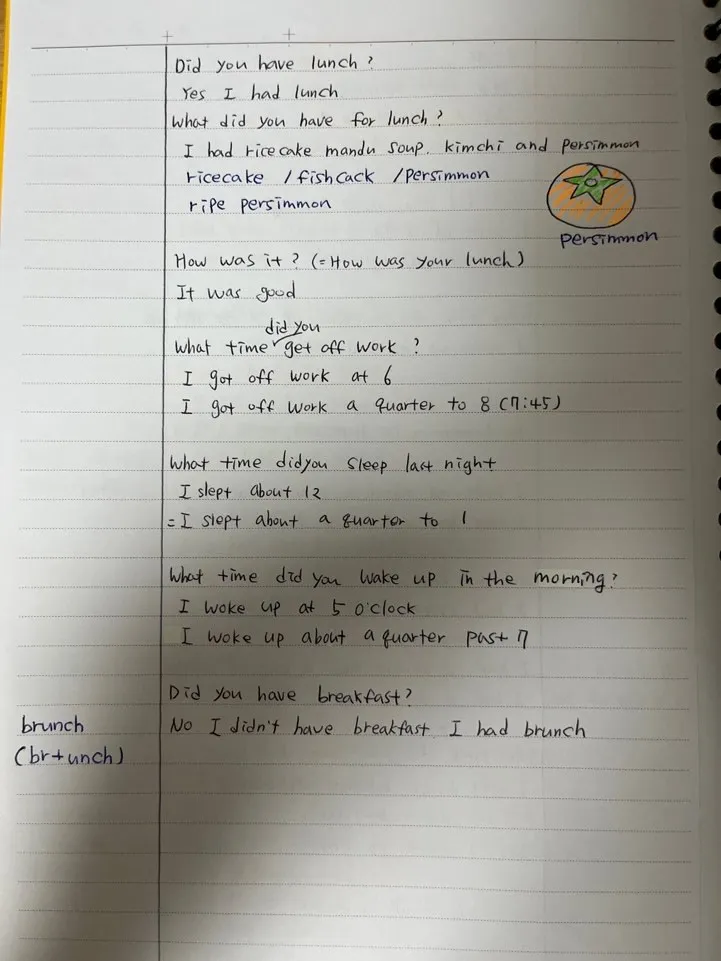 Did you have lunch?
Yes I had lunch
What did you have for lunch?
I had ricecake mandu soup. kimchi and persimmon
ricecake / fishcack / persimmon
ripe persimmon
persimmon
How was it? (= How was your lunch)
It was good
did you
What time get off work ?
I got off work at 6
I got off work a quarter to 8 (7:45)
What time did you sleep last night
I slept about 12
= I slept about a quarter to 1
What time did you wake up in the morning?
I woke up at 5 o'clock
I woke up about a quarter past 7
Did you have breakfast?
brunch
No I didn't have breakfast I had brunch
(br+unch)